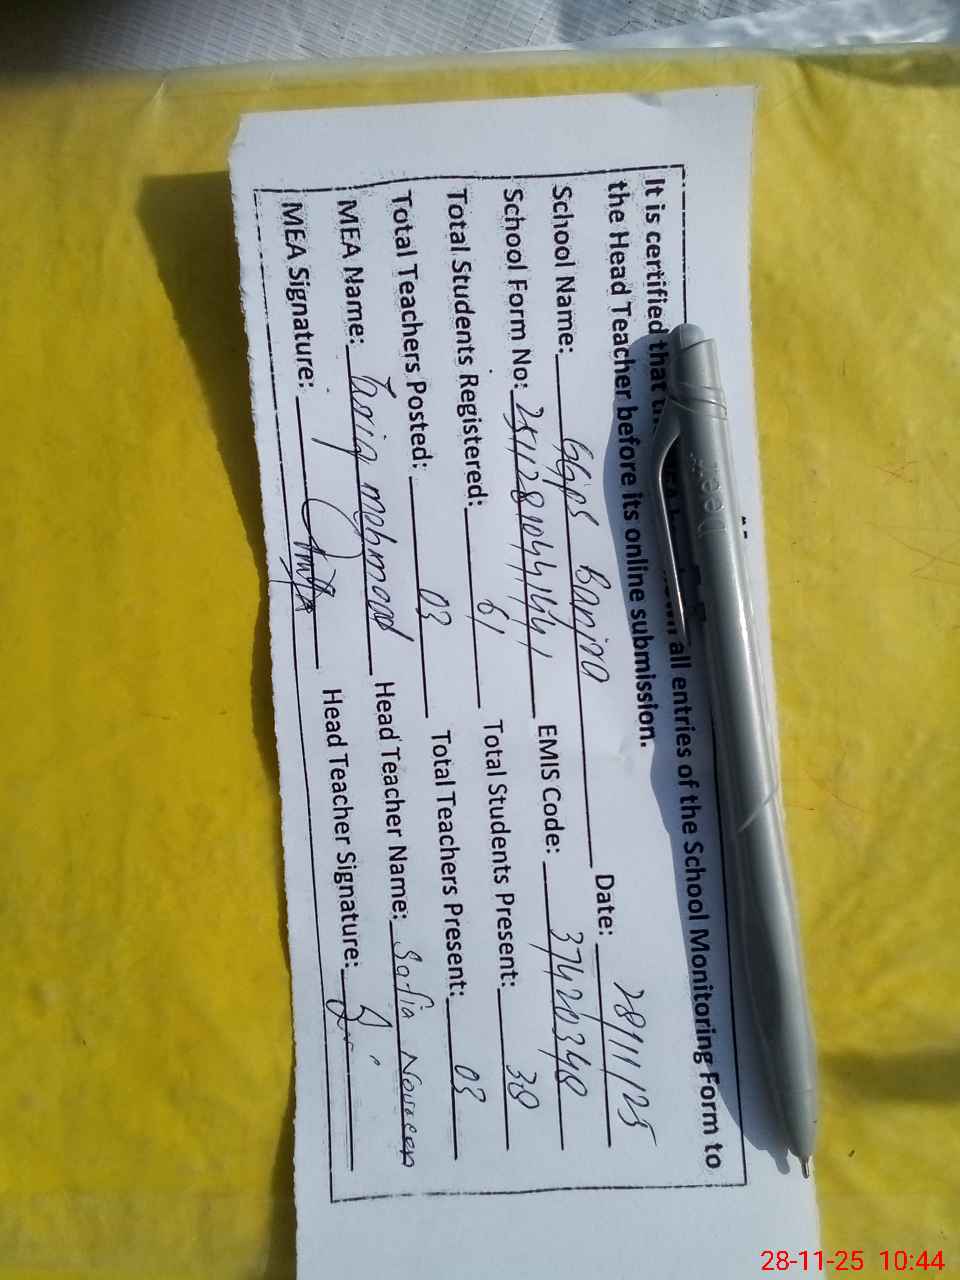 It is certified that all entries of the School Monitoring Form to
the Head Teacher before its online submission.
School Name: GGPS Banjra Date: 28/11/25
School Form No: EMIS Code: 37420348
Total Students Registered: 61 Total Students Present: 38
Total Teachers Posted: 03 Total Teachers Present: 03
MEA Name: Tariq mehmood Head Teacher Name: Safia Noureen
MEA Signature: Head Teacher Signature:
Deer
28-11-25 10:44